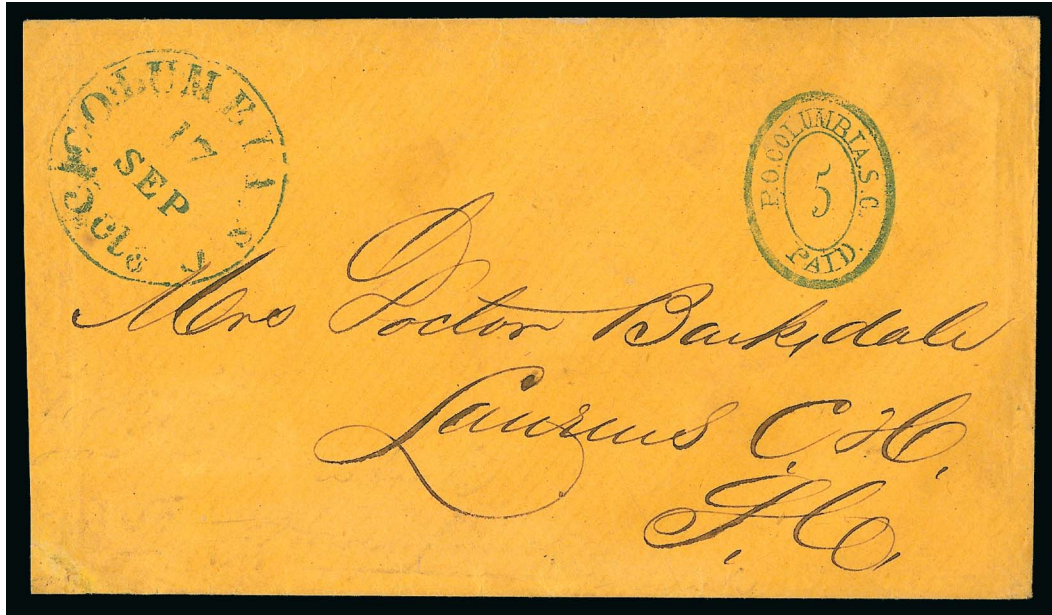 COLUMBIA
17
SEP
S C
5 cts
P.O. COLUMBIA, S.C.
5
PAID.
Mrs Doctor Barksdale
Laurens C. H.
S. C.